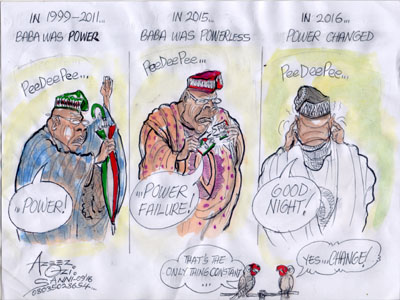 IN 1999-2011...
BABA WAS POWER
PeeDeePee...
...POWER!
IN 2015...
BABA WAS POWERLESS
PeeDeePee...
...POWER
FAILURE!
IN 2016...
POWER CHANGED
PeeDeePee...
GOOD
NIGHT!
THAT'S THE
ONLY THING CONSTANT
YES...CHANGE!
AZEEZ
OZI.
SANNI-09/16
08035023654